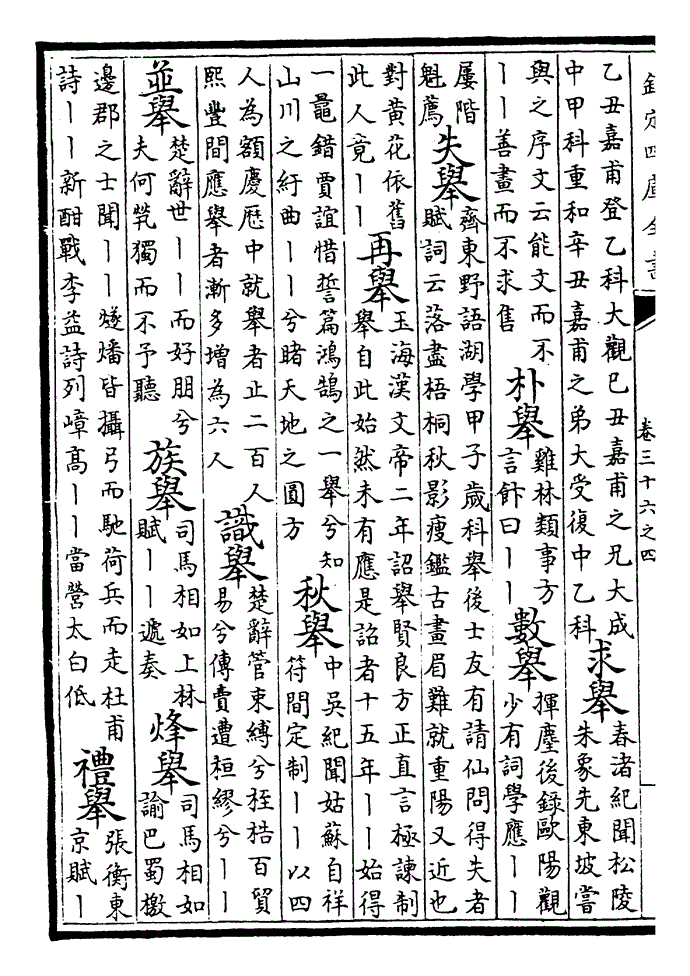 欽定四庫全書
卷三十六之四
乙丑嘉甫登乙科大觀已丑嘉甫之兄大成
中甲科重和辛丑嘉甫之弟大受復中乙科
求舉
春渚紀聞松陵
朱象先東坡嘗
與之序文云能文而不
丨丨善畫而不求售
朴舉
雞林類事方
言飰曰丨丨
數舉
揮麈後錄歐陽觀
少有詞學應丨丨
屢階
魁薦
失舉
齊東野語湖學甲子歲科舉後士友有請仙問得失者
賦詞云落盡梧桐秋影瘦鑑古畫眉難就重陽又近也
對黃花依舊
此人竟丨丨
再舉
玉海漢文帝二年詔舉賢良方正直言極諫制
舉自此始然未有應是詔者十五年丨丨始得
一鼂錯賈誼惜誓篇鴻鵠之一舉兮知
山川之紆曲丨丨兮睹天地之圜方
秋舉
中吳紀聞姑蘇自祥
符間定制丨丨以四
人為額慶歴中就舉者止二百人
熙豐間應舉者漸多增為六人
識舉
楚辭管束縛兮桎梏百貿
易兮傳賣遭桓繆兮丨丨
並舉
楚辭世丨丨而好朋兮
夫何煢獨而不予聽
族舉
司馬相如上林
賦丨丨遞奏
烽舉
司馬相如
諭巴蜀檄
邊郡之士聞丨丨燧燔皆攝弓而馳荷兵而走杜甫
詩丨丨新酣戰李益詩列嶂高丨丨當營太白低
禮舉
張衡東
京賦丨